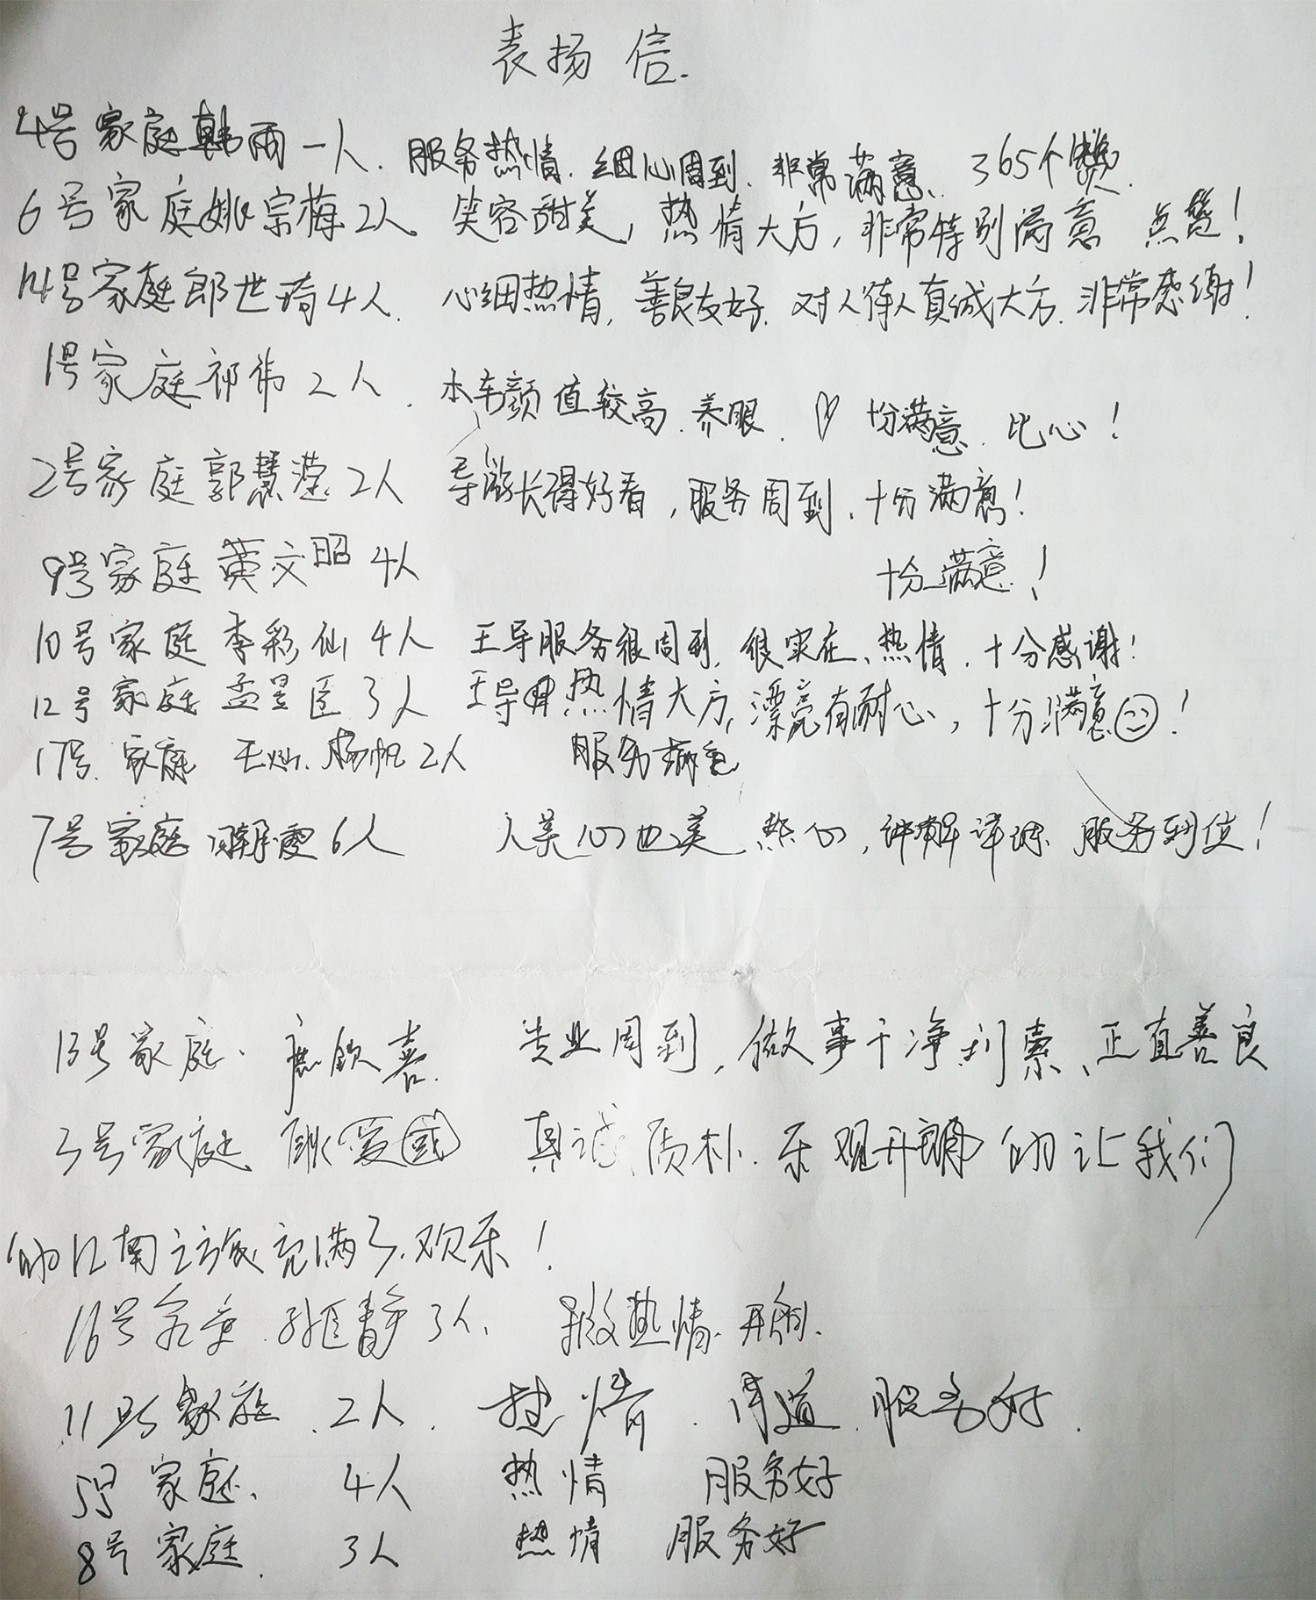 表扬信.
4号家庭韩雨一人. 服务热情.细心周到.非常满意. 365个赞.
6号家庭姚宗梅2人 笑容甜美, 热情大方, 非常特别满意 点赞!
14号家庭郎世琦4人. 心细热情, 善良友好. 对人待人真诚大方. 非常感谢!
1号家庭祁伟2人. 本车颜值较高. 养眼. ♡ 十分满意. 比心!
2号家庭郭慧滢2人 导游长得好看, 服务周到. 十分满意!
9号家庭黄文昭4人 十分满意!
10号家庭李彩仙4人 王导服务很周到, 很实在、热情. 十分感谢!
12号家庭孟昱臣3人 王导热情大方, 漂亮有耐心, 十分满意!
17号.家庭 王灿.杨帆2人 服务
7号家庭 6人 人美心也美 热心, 讲解详 服务到位!
13号家庭. 钦喜. 专业周到, 做事干净利索、正直善良
3号家庭 爱国 真诚.质朴.乐观开朗的让我们
的江南之旅充满了欢乐!
16号家庭.静3人. 导游热情.开朗.
11号家庭.2人. 热情. 周道.服务好.
5号家庭. 4人 热情 服务好
8号家庭. 3人 热情 服务好